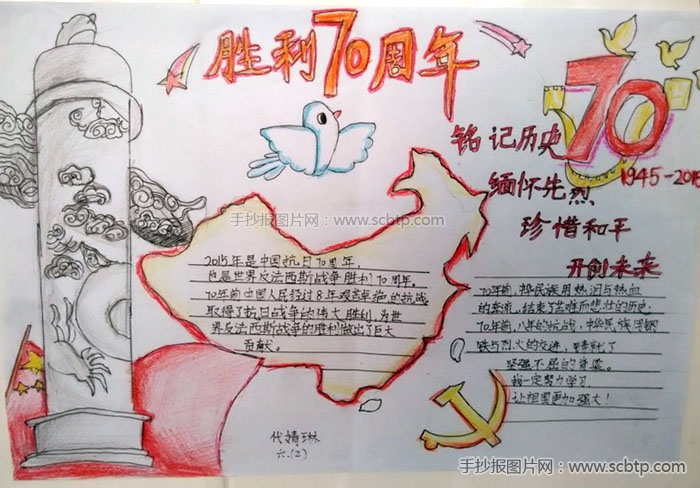 胜利70周年
70
1945-2015
铭记历史
缅怀先烈
珍惜和平
开创未来
手抄报图片网:www.scbtp.com
2015年是中国抗日70周年
也是世界反法西斯战争胜利70周年。
70年前中国人民经过8年艰苦卓绝的抗战
取得了抗日战争的伟大胜利,为世
界反法西斯战争的胜利做出了巨大
贡献。
70年前,中华民族用热泪与热血
的交流,结束了苦难而悲壮的历史
70年前,八年的抗战,中华民族因钢
铁与烈火的交迸,铸就了
坚强不屈的脊梁。
我一定努力学习
让祖国更加强大!
代婧琳
六.(2)
手抄报图片网:www.scbtp.com